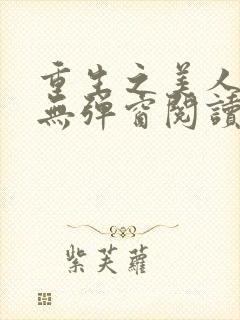 重生之美人
無彈窗閱讀
紫芙蘿